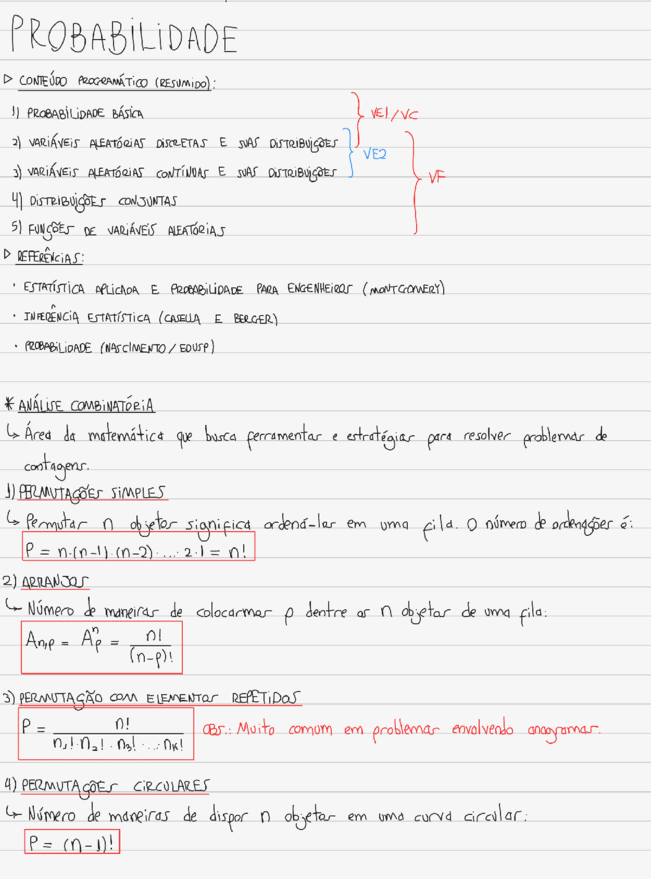 PROBABILIDADE
▷ CONTEÚDO PROGRAMÁTICO (RESUMIDO):
1) PROBABILIDADE BÁSICA
2) VARIÁVEIS ALEATÓRIAS DISCRETAS E SUAS DISTRIBUIÇÕES
3) VARIÁVEIS ALEATÓRIAS CONTÍNUAS E SUAS DISTRIBUIÇÕES
4) DISTRIBUIÇÕES CONJUNTAS
5) FUNÇÕES DE VARIÁVEIS ALEATÓRIAS
VE1/VC
VE2
VF
▷ REFERÊNCIAS:
· ESTATÍSTICA APLICADA E PROBABILIDADE PARA ENGENHEIROS (MONTGOMERY)
· INFERÊNCIA ESTATÍSTICA (CASELLA E BERGER)
· PROBABILIDADE (NASCIMENTO/EDUSP)
* ANÁLISE COMBINATÓRIA
↳ Área da matemática que busca ferramentas e estratégias para resolver problemas de
contagens.
1) PERMUTAÇÕES SIMPLES
↳ Permutar n objetos significa ordená-los em uma fila. O número de ordenações é:
P = n·(n-1)·(n-2)·...·2·1 = n!
2) ARRANJOS
↳ Número de maneiras de colocarmos p dentre os n objetos de uma fila:
A_{n,p} = A_p^n = n!/(n-p)!
3) PERMUTAÇÃO COM ELEMENTOS REPETIDOS
P = n!/(n₁!·n₂!·n₃!·...·n_k!) OBS.: Muito comum em problemas envolvendo anagramas.
4) PERMUTAÇÕES CIRCULARES
↳ Número de maneiras de dispor n objetos em uma curva circular:
P = (n-1)!